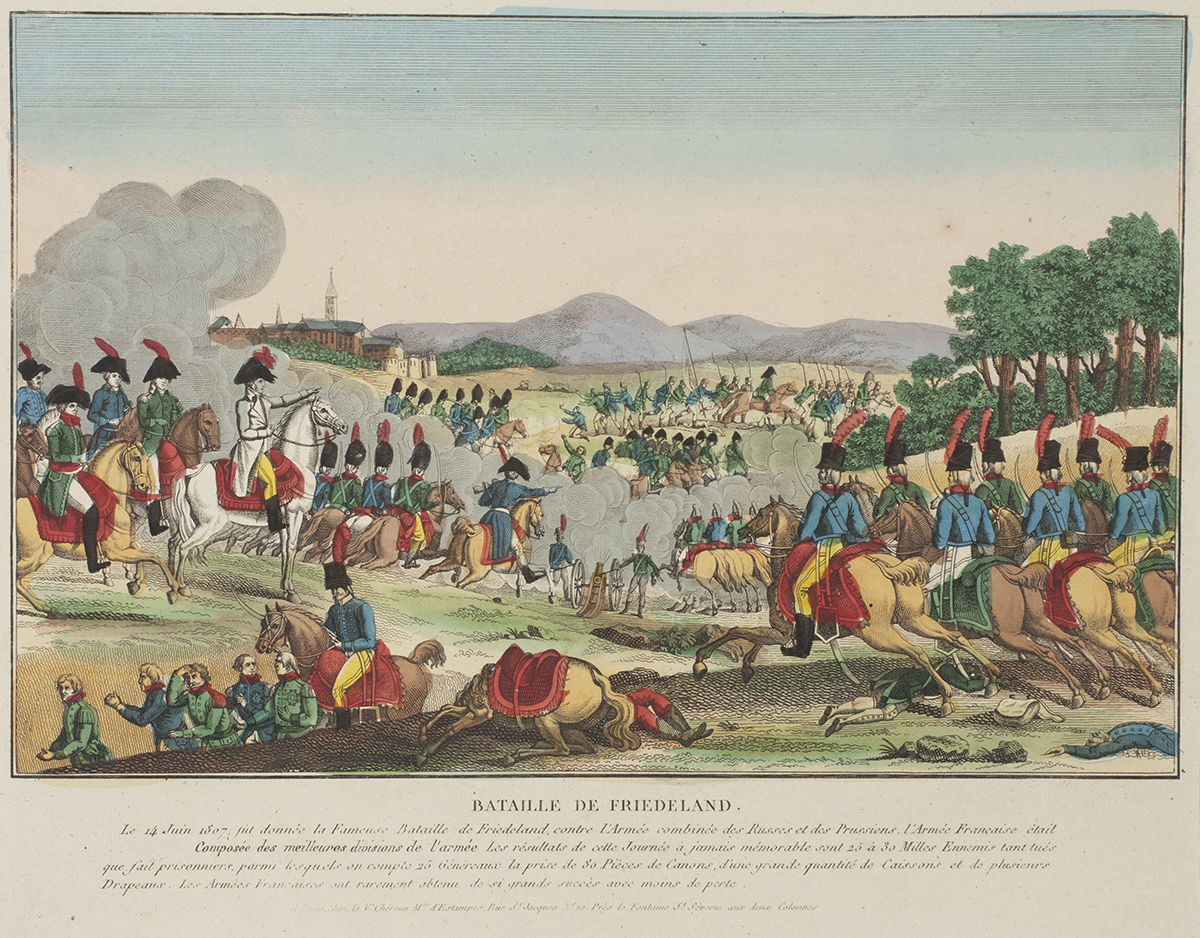 BATAILLE DE FRIEDELAND.
Le 14 Juin 1807, fut donnée la Fameuse Bataille de Friedeland, contre l'Armée combinée des Russes et des Prussiens. l'Armée Française était
Composée des meilleures divisions de l'armée. Les résultats de cette Journée à jamais mémorable sont 25 à 30 Milles Ennemis tant tués
que fait prisonniers, parmi lesquels on compte 25 Généreaux la prise de 80 Pièces de Canons, d'une grande quantité de Caissons et de plusieurs
Drapeaux. Les Armées Françaises ont rarement obtenu de si grands succès avec moins de perte.
A Paris, chez la Ve. Chéreau Mde. d'Estampes, Rue St. Jacques No. 10. Près la Fontaine St. Séverin aux deux Colonnes